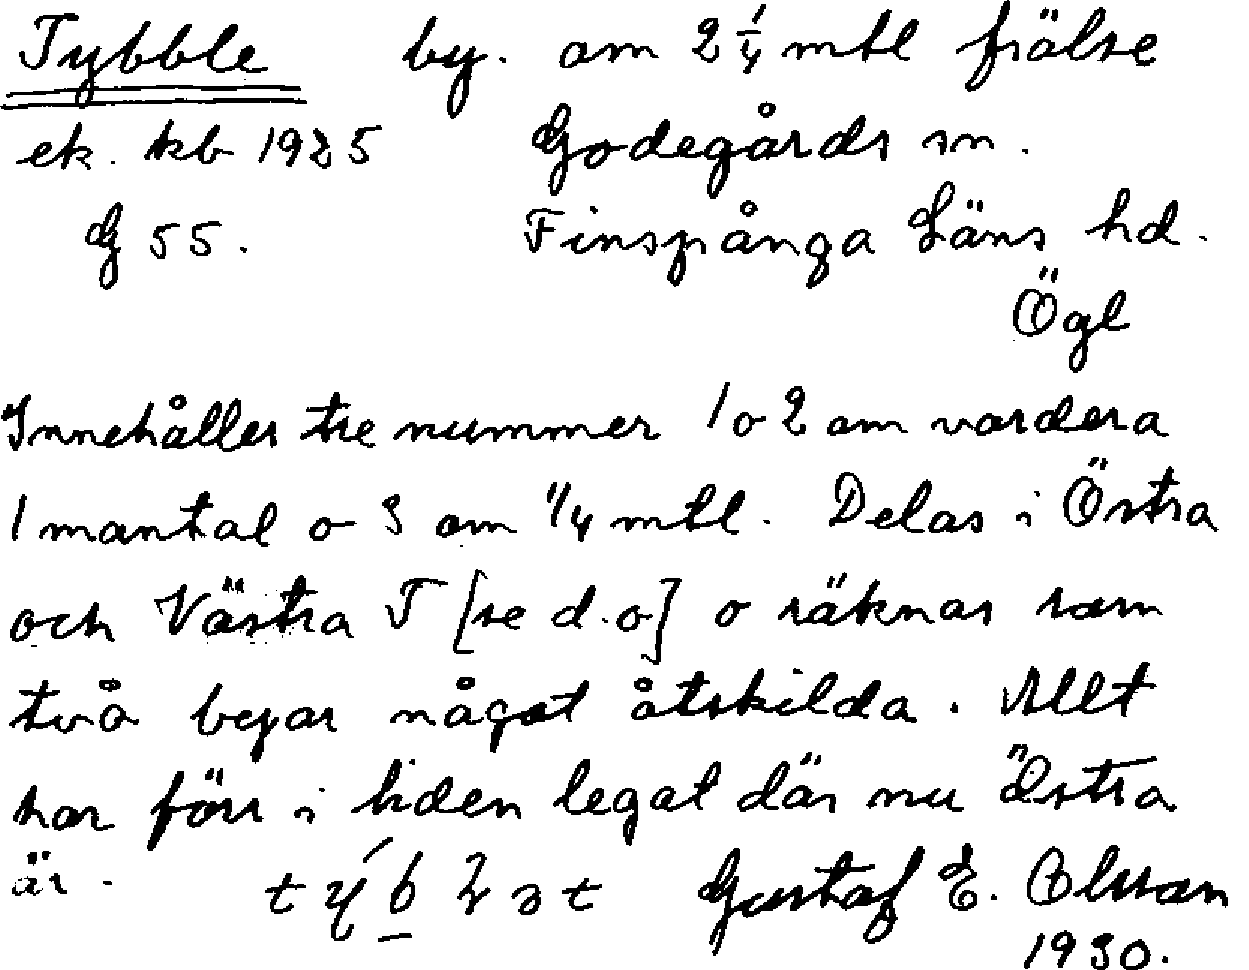 Tybble by. om 2 1/4 mtl frälse
ek. kb 1925 Godegårds sn.
G 55. Finspånga Läns hd.
Ögl
Innehåller tre nummer 1 o 2 om vardera
1 mantal o 3 om 1/4 mtl. Delas i Östra
och Västra T [se d.o] o räknas som
två byar något åtskilda. Allt
har förr i tiden legat där nu Östra
är. Gustaf E. Olsson
1930.